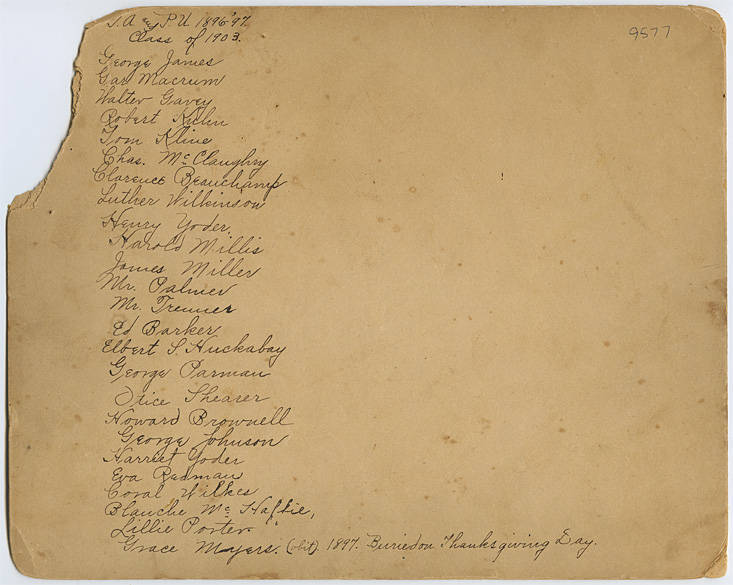 S. A. & P. U. 1896-'97.
Class of 1903.
9577
George James
Gar Macrum
Walter Gavey
Robert Kuhn
Tom Kline
Chas. McClaughry
Clarence Beauchamp
Luther Wilkinson
Henry Yoder.
Harold Millis
James Miller
Mr. Palmer
Mr. Trenner
Ed Barker
Elbert S. Huckabay
George Parman
Otice Shearer
Howard Brownell
George Johnson
Harriet Yoder
Eva Redman
Coral Wilkes
Blanche Mc Haffie,
Lillie Porter
Grace Myers. (obit). 1897. Buried on Thanksgiving Day.